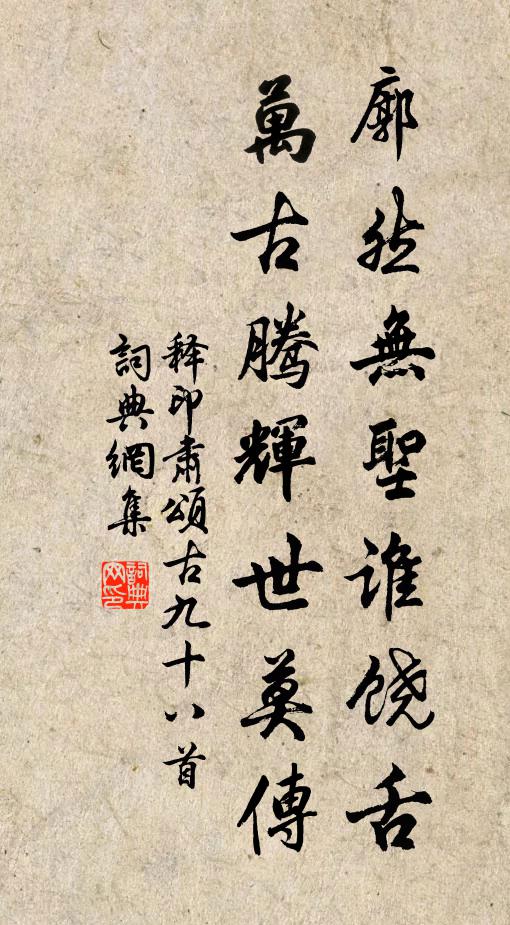 廓然無聖谁饶舌
萬古騰輝世莫傳
释印肃頌古九十八首
詞典網集
詞典网印